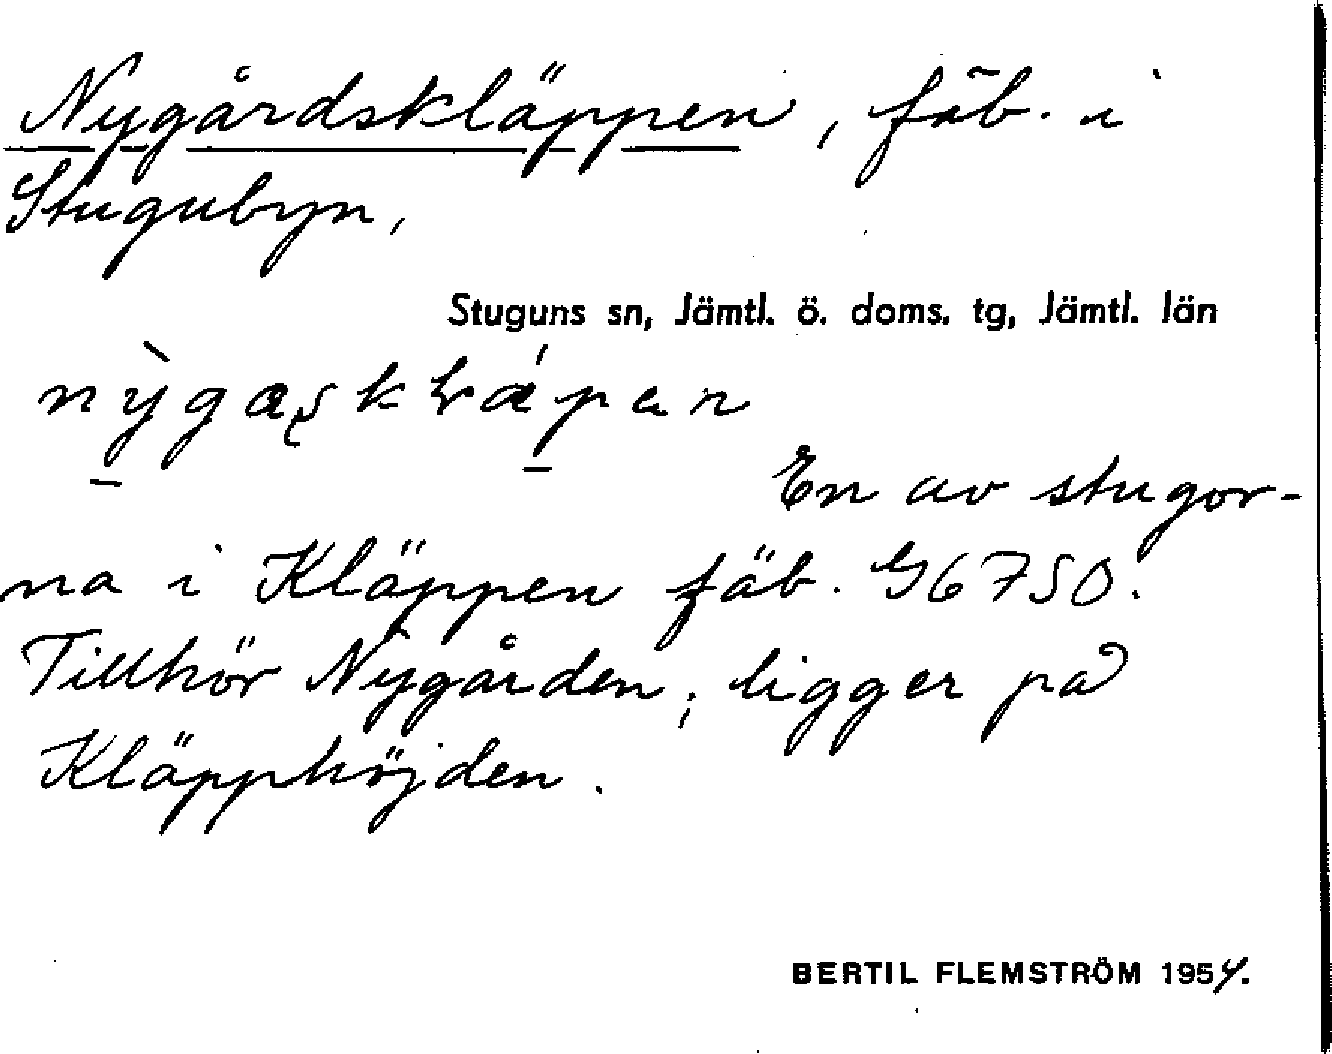 Nygårdskläppen, fäb. i
Stugubyn,
Stuguns sn, Jämtl. ö. doms. tg, Jämtl. län
En av stugor-
na i Kläppen fäb. G6750.
Tillhör Nygården; ligger på
Kläpphöjden.
BERTIL FLEMSTRÖM 1954.